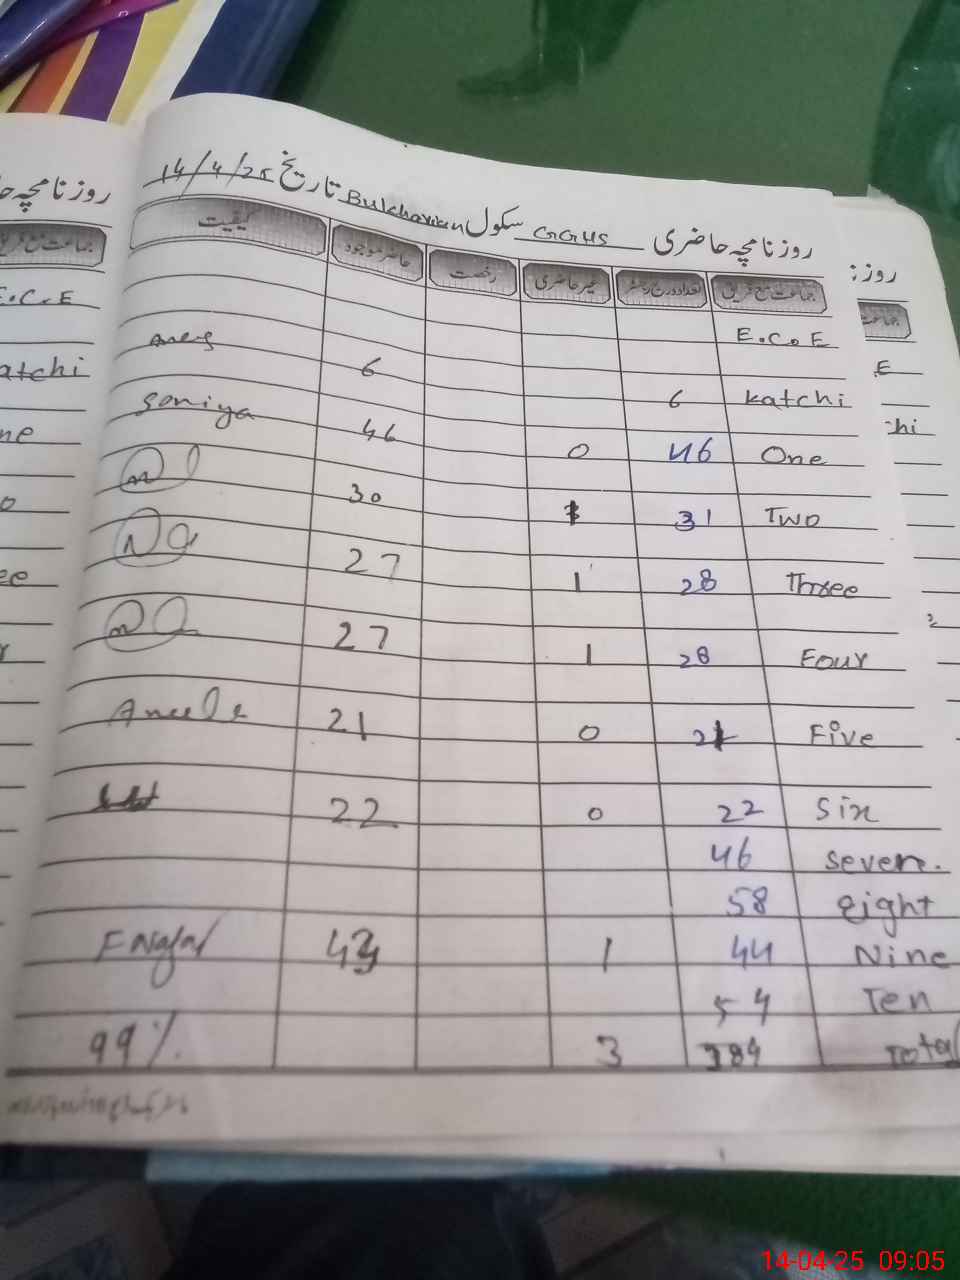 روزنامچہ حاضری GGHS سکول Bukharian تاریخ 14/4/25
جماعت مع فریق تعداد درج رجسٹر غیر حاضری رخصت حاضر موجود کیفیت
E.C.E
katchi 6 6
One 46 0 46 Soniya
Two 31 1 30
Three 28 1 27
Four 28 1 27
Five 21 0 21 Aneela
Six 22 0 22
Seven. 46
eight 58
Nine 44 1 43
Ten 54
Total 384 3 99%
روزنامچہ
جماعت مع فریق
E.C.E
atchi
ne
o
ee
r
روز
جماعت
E
chi
14-04-25 09:05